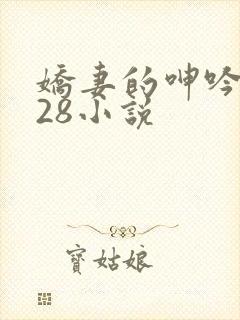 嬌妻的呻吟
28小說
寶姑娘